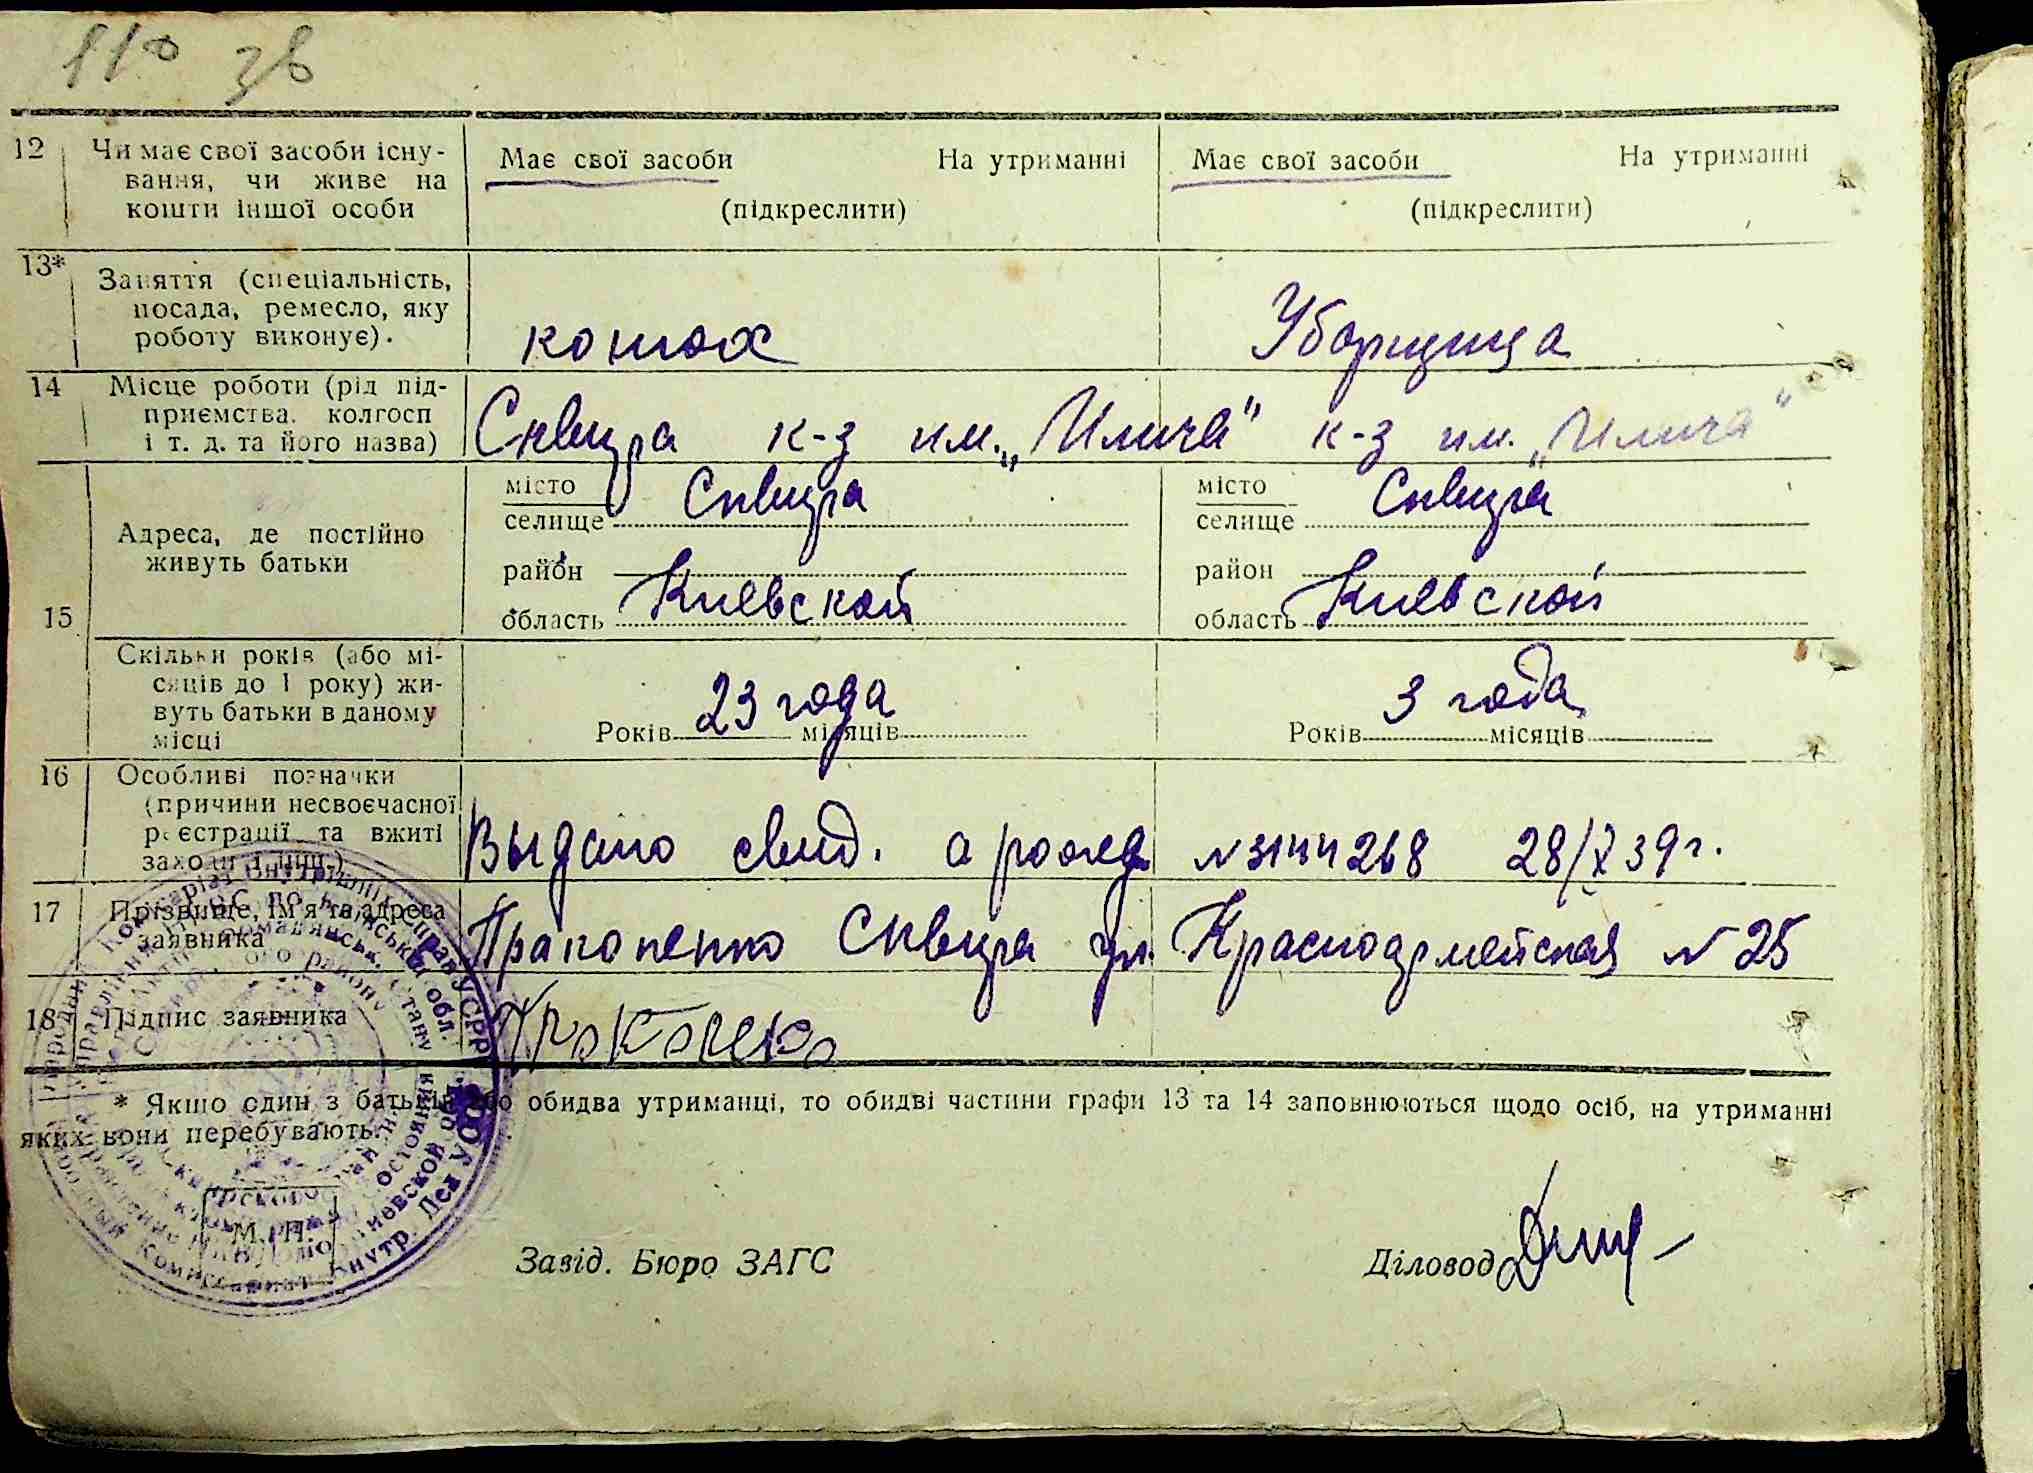 110 зв
12 Чи має свої засоби існу-
вання, чи живе на
кошти іншої особи
Має свої засоби На утриманні
(підкреслити)
Має свої засоби На утриманні
(підкреслити)
13* Заняття (спеціальність,
посада, ремесло, яку
роботу виконує).
конюх
Уборщица
14 Місце роботи (рід під-
приємства, колгосп
і т. д. та його назва)
Сквира к-з им. „Илича"
к-з им. „Илича"
15
Адреса, де постійно
живуть батьки
місто
селище Сквира
район
область Киевской
місто
селище Сквира
район
область Киевской
Скільки років (або мі-
сяців до 1 року) жи-
вуть батьки в даному
місці
Років 23 года місяців
Років 3 года місяців
16 Особливі позначки
(причини несвоєчасної
реєстрації та вжиті
заходи і інш.)
Выдано свид. о рожд №3144268 28/X 39 г.
17 Прізвище, ім'я та адреса
заявника
Пракопенко Сквира ул. Красноармейская № 25
18 Підпис заявника
* Якщо один з батьків або обидва утриманці, то обидві частини графи 13 та 14 заповнюються щодо осіб, на утриманні
яких вони перебувають.
М. П.
Завід. Бюро ЗАГС
Діловод